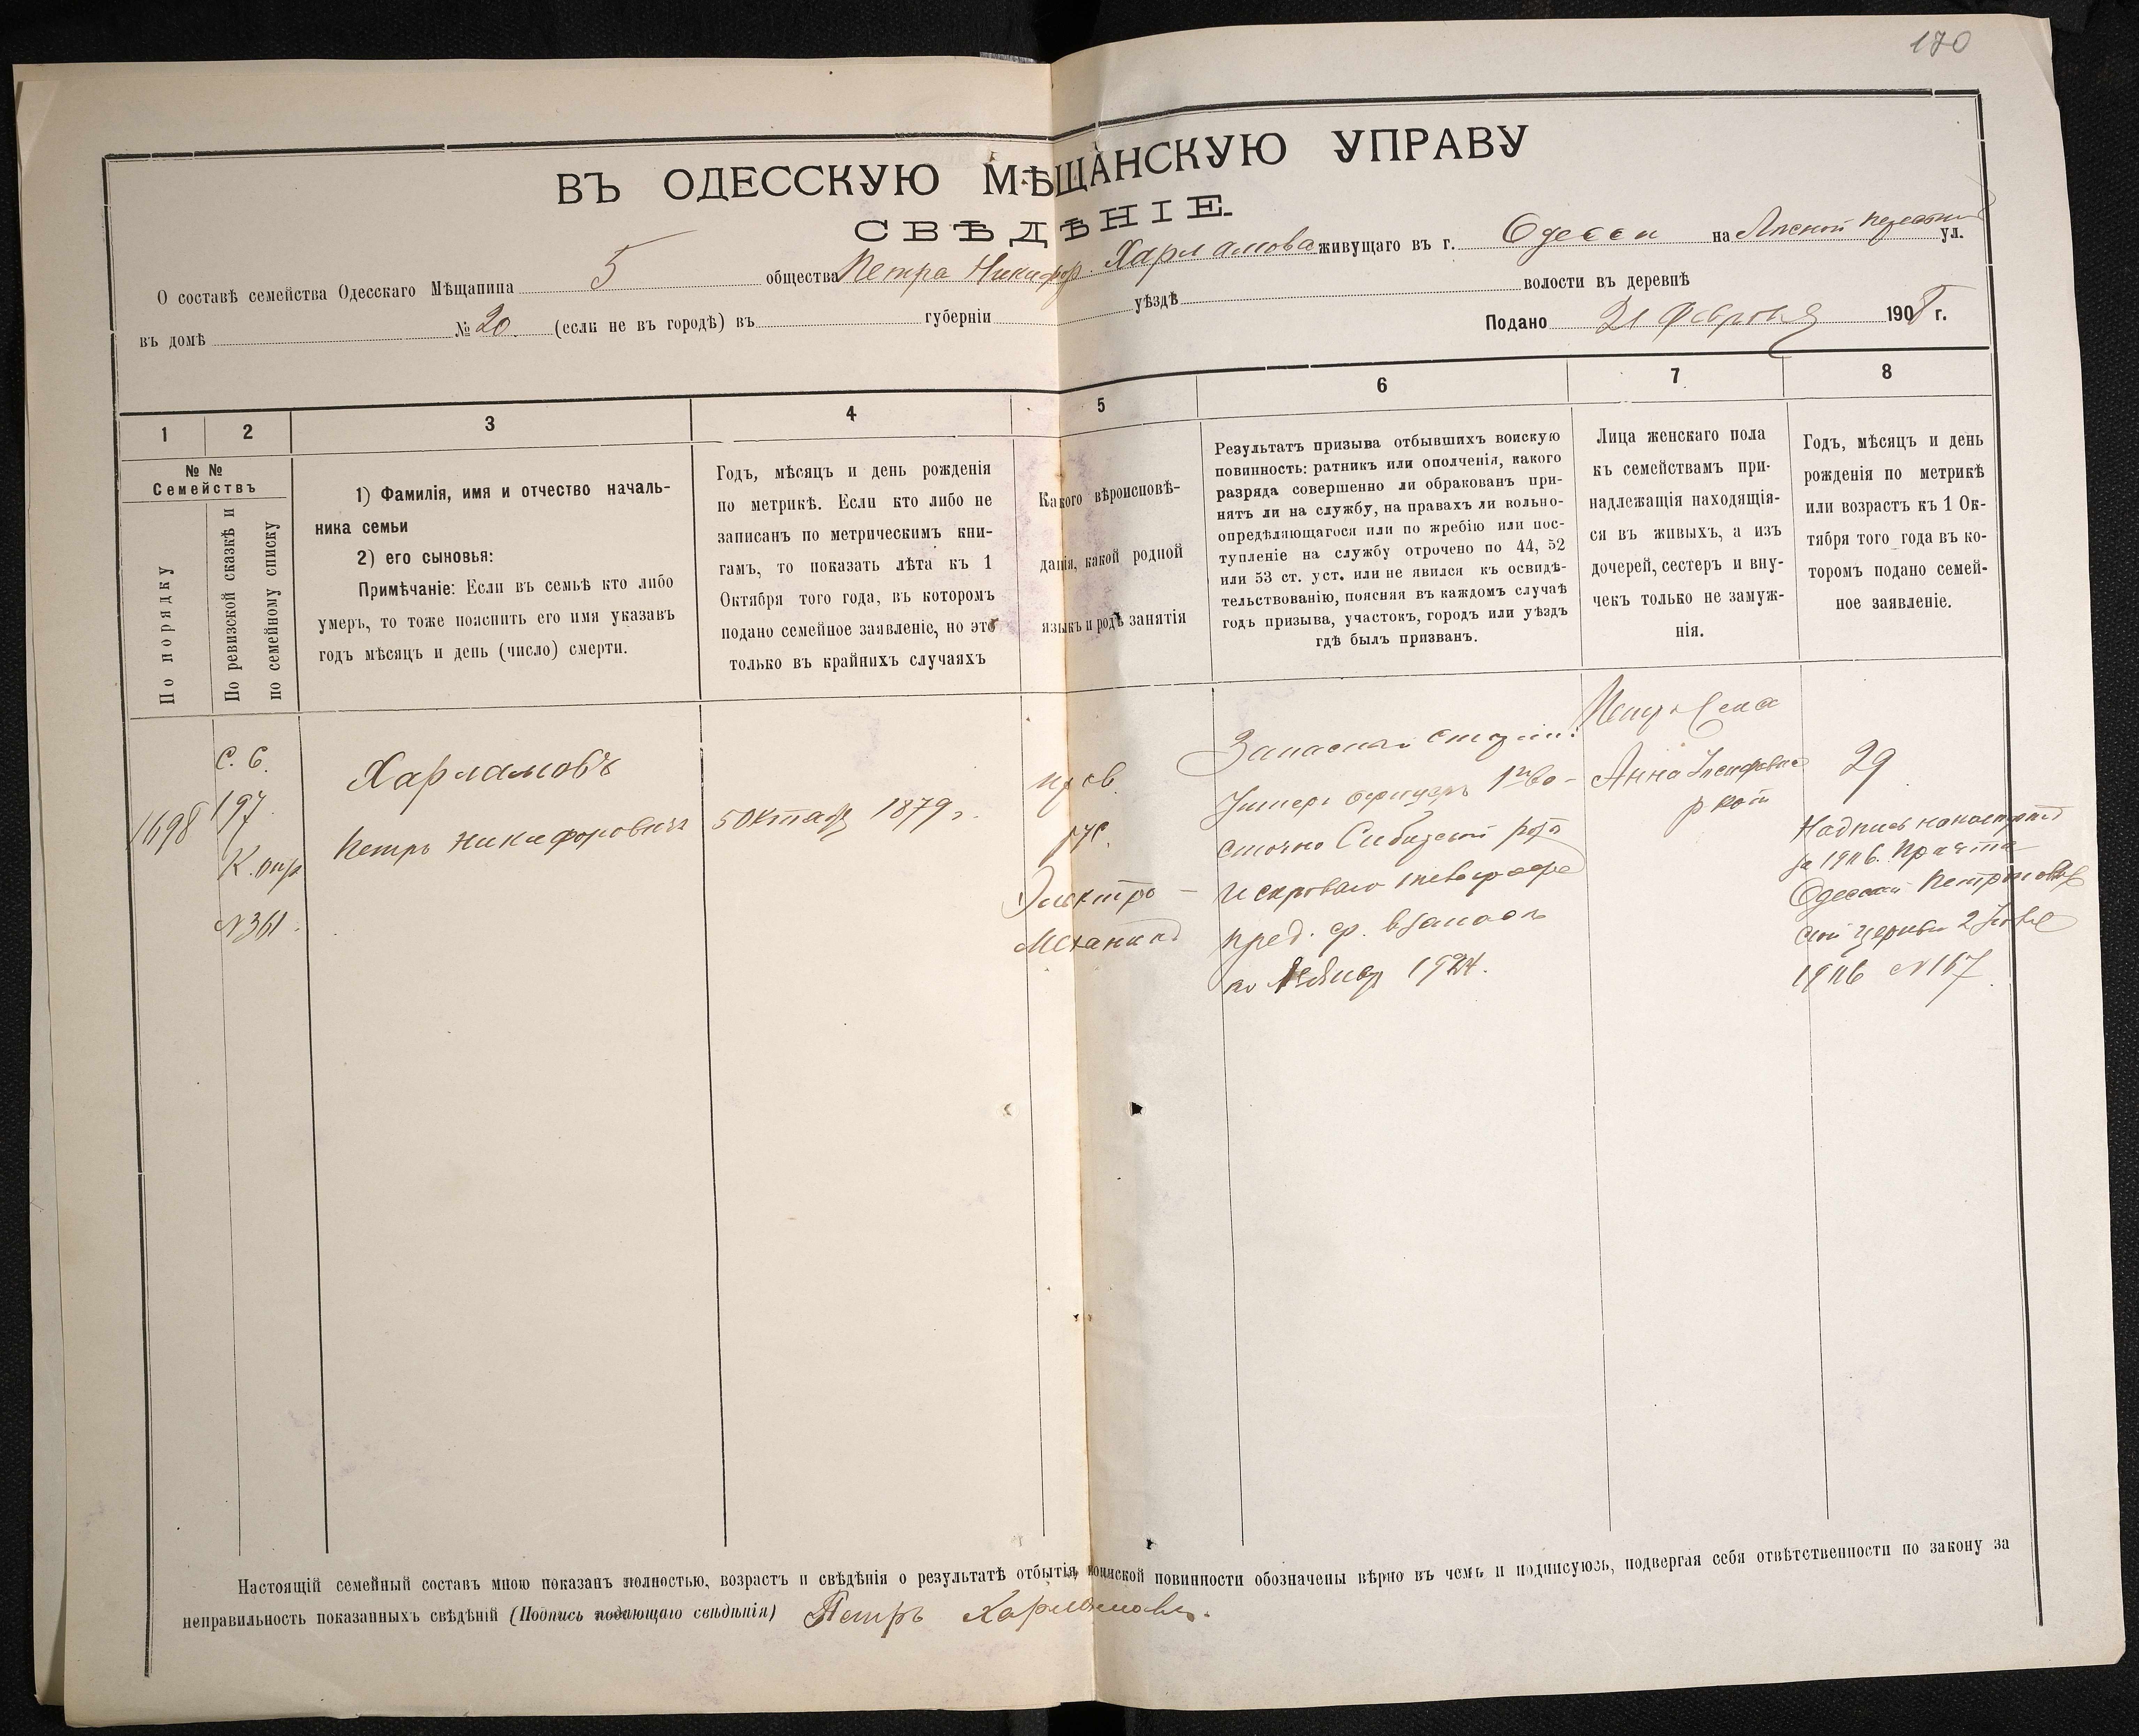 170
ВЪ ОДЕССКУЮ МѢЩАНСКУЮ УПРАВУ
СВѢДѢНІЕ.
О составѣ семейства Одесскаго Мѣщанина 5 общества Петра Никифор. Харламова живущаго въ г. Одессѣ на ул.
въ домѣ № 20 (если не въ городѣ) въ губерніи уѣздѣ волости въ деревнѣ
Подано 21 Февраля 1908 г.
1 2 3 4 5 6 7 8
№ №
Семействъ
По порядку
По ревизской сказкѣ и
по семейному списку
1) Фамилія, имя и отчество началь-
ника семьи
2) его сыновья:
Примѣчаніе: Если въ семьѣ кто либо
умеръ, то тоже пояснить его имя указавъ
годъ мѣсяцъ и день (число) смерти.
Годъ, мѣсяцъ и день рожденія
по метрикѣ. Если кто либо не
записанъ по метрическимъ кни-
гамъ, то показать лѣта къ 1
Октября того года, въ которомъ
подано семейное заявленіе, но это
только въ крайнихъ случаяхъ
Какого вѣроисповѣ-
данія, какой родной
языкъ и родъ занятія
Результатъ призыва отбывшихъ воискую
повинность: ратникъ или ополченія, какого
разряда совершенно ли обракованъ при-
нятъ ли на службу, на правахъ ли вольно-
опредѣляющагося или по жребію или пос-
тупленіе на службу отрочено по 44, 52
или 53 ст. уст. или не явился къ освидѣ-
тельствованію, поясняя въ каждомъ случаѣ
годъ призыва, участокъ, городъ или уѣздъ
гдѣ былъ призванъ.
Лица женскаго пола
къ семействамъ при-
надлежащія находящія-
ся въ живыхъ, а изъ
дочерей, сестеръ и вну-
чекъ только не замуж-
нія.
Годъ, мѣсяцъ и день
рожденія по метрикѣ
или возрастъ къ 1 Ок-
тября того года въ ко-
торомъ подано семей-
ное заявленіе.
1698
С. С.
197
К. опр
N 361.
Харламовъ
Петръ Никифоровичъ
5 Октябр 1879 г.
прав.
рус.
Электро-
Механикъ
Запасной
Унтеръ офицеръ 1го Во-
сточно Сибирской роты
Искроваго телеграфа
пред. ср. въ запасъ
по 1924.
Петра жена
Анна
29
Надпись
за 1906.
Одесской Петропавлов
ской церкви 2
1906 N 167
Настоящій семейный составъ мною показанъ полностью, возрастъ и свѣдѣнія о результатѣ отбытія воинской повинности обозначены вѣрно въ чемъ и подписуюсь, подвергая себя отвѣтственности по закону за
неправильность показанныхъ свѣдѣній (Подпись подающаго свѣдѣнія) Петръ Харламовъ.